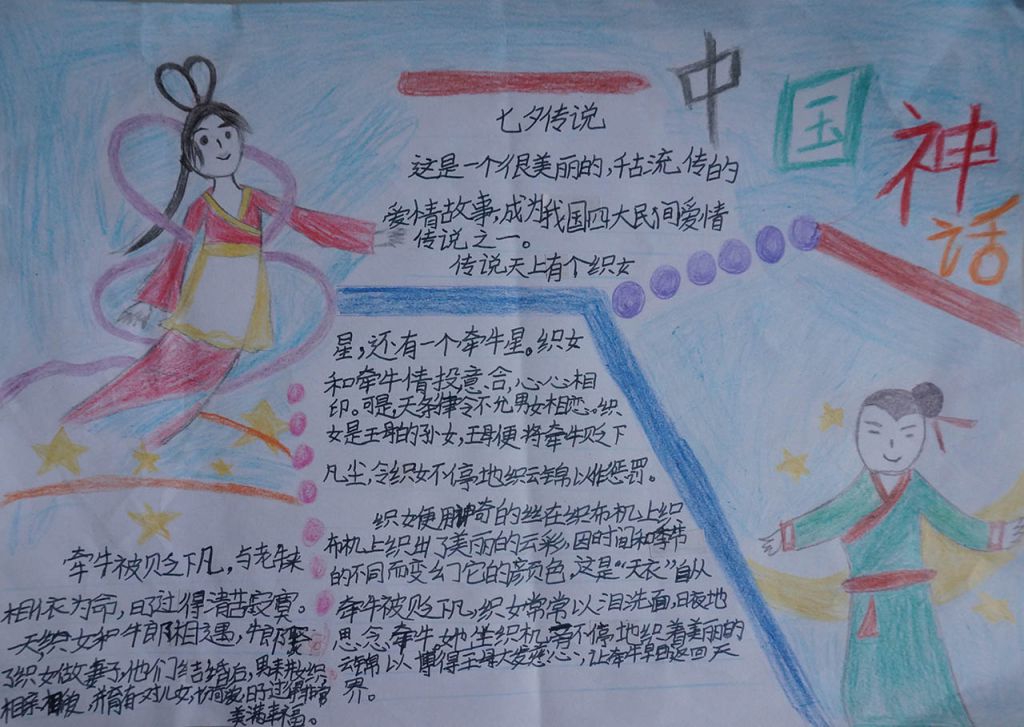 中国神话
七夕传说
这是一个很美丽的,千古流传的
爱情故事,成为我国四大民间爱情
传说之一。
传说天上有个织女
星,还有一个牵牛星。织女
和牵牛情投意合,心心相
印。可是,天条律令不允男女相恋。织
女是王母的孙女,王母便将牵牛贬下
凡尘,令织女不停地织云锦以作惩罚。
织女便用神奇的丝在织布机上织
布机上织出了美丽的云彩,因时间和季节
的不同而变幻它的颜色,这是“天衣”自从
牵牛被贬下凡,织女常常以泪洗面,日夜地
思念牵牛她坐织机不停地织着美丽的
云锦以博得王母大发慈心,让牵牛早日返回天
界。
牵牛被贬下凡,与老牛
相依为命,日子过得清苦寂寞。
天织女和牛郎相遇,牛郎娶
了织女做妻子,他们结婚后,男耕女织
相亲相爱,并育有一对儿女,日子过得非常
美满幸福。